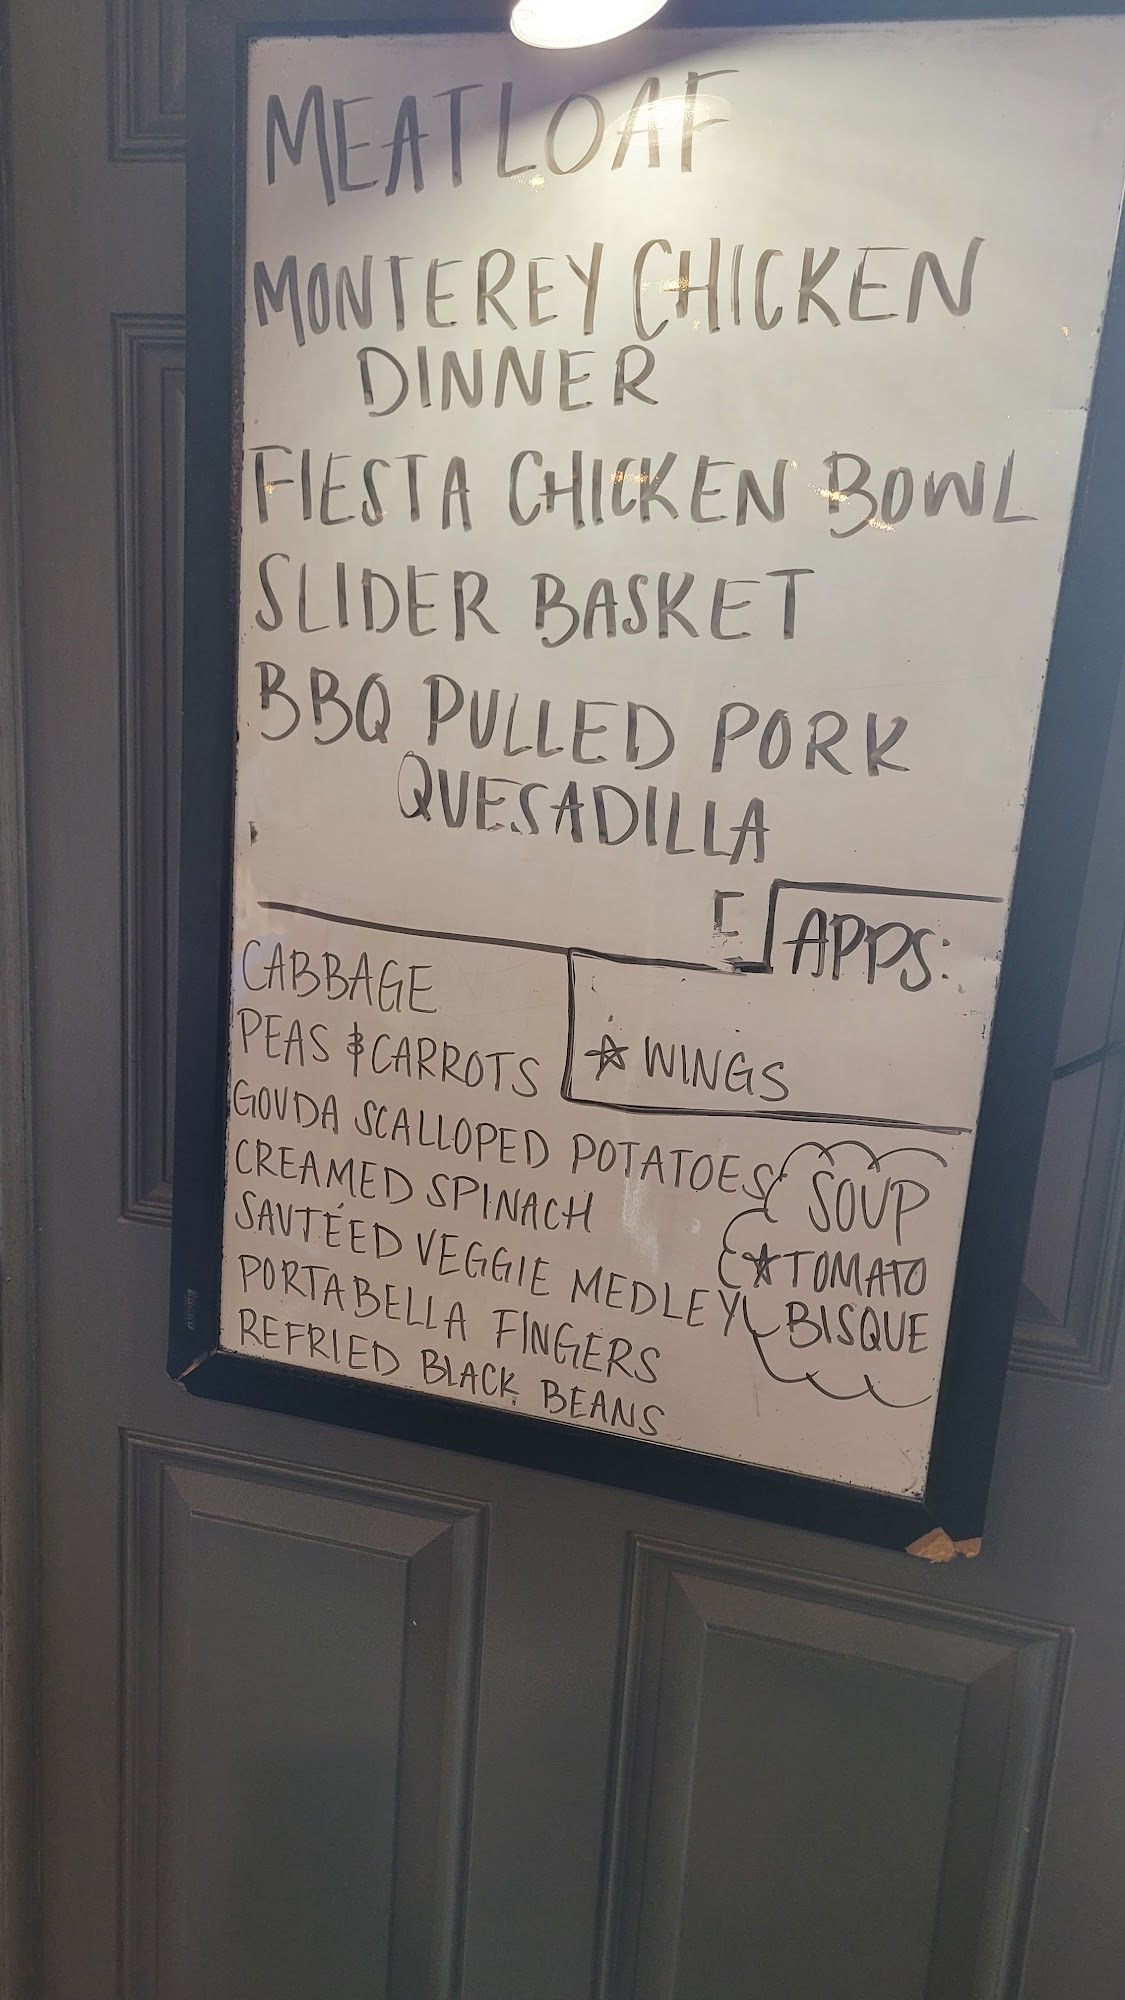 MEATLOAF
MONTEREY CHICKEN
DINNER
FIESTA CHICKEN BOWL
SLIDER BASKET
BBQ PULLED PORK
QUESADILLA
APPS:
☆ WINGS
CABBAGE
PEAS & CARROTS
GOUDA SCALLOPED POTATOES
CREAMED SPINACH
SAUTÉED VEGGIE MEDLEY
PORTABELLA FINGERS
REFRIED BLACK BEANS
SOUP
☆ TOMATO
BISQUE